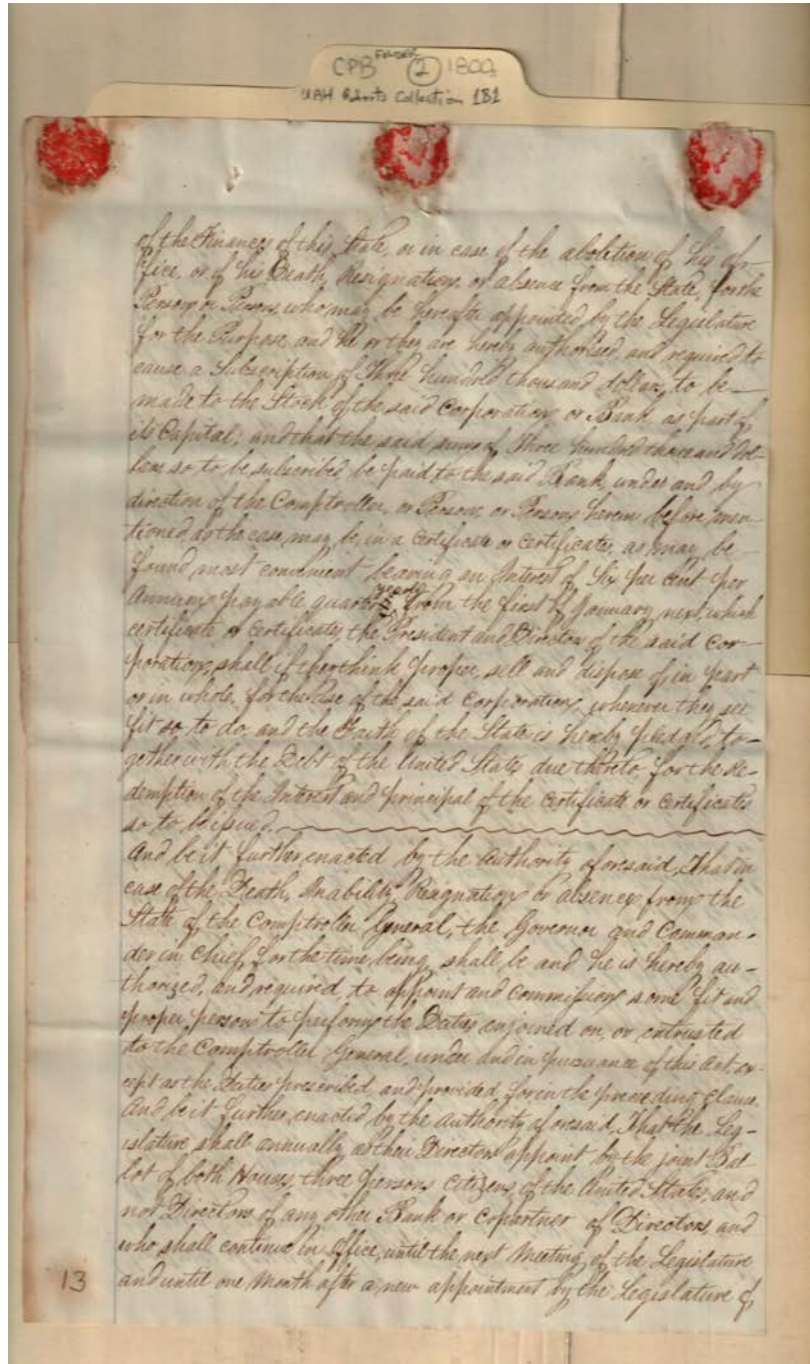 FOLDER
CPB (2) 1802
UAH Roberts Collection 1B1
of the Finances of this State, or in case of the abolition of his of-
fice, or of his Death, Resignation, or absence from the State, for the
Person or Persons, who may be hereafter appointed, by the Legislature
for the Purpose, and he or they are hereby authorised, and required to
cause a Subscription of Three hundred thousand dollars, to be
made to the Stock of the said Corporation or Bank, as part of
its Capital; and that the said sum of Three hundred thousand dol-
lars so to be subscribed, be paid, to the said Bank, under and by
direction of the Comptroller, or Person, or Persons herein before men-
tioned, as the case may be, in a Certificate or Certificates, as may be
found most convenient bearing an Interest of Six per Cent per
Annum, payable quarter yearly from the first of January next, which
certificate or certificates, the President and Directors of the said Cor-
poration, shall if they think proper, sell and dispose of, in part
or in whole, for the Use of the said Corporation, whenever they see
fit so to do, and the Faith of the State is hereby pledged, to-
gether with the Debt of the United States, due thereto, for the Re-
demption of the Interest and principal of the Certificate or Certificates
so to be issued.
And be it further enacted by the Authority aforesaid, That in
case of the Death, Inability, Resignation or absence from the
State of the Comptroller General, the Governor and Comman-
der in Chief, for the time being, shall be and he is hereby au-
thorized, and required, to appoint and Commission some fit and
proper person to perform the Duties enjoined on, or entrusted
to the Comptroller General, under and in pursuance of this Act, ex-
cept as the Duties prescribed, and provided, for in the preceding Clause.
And be it further enacted by the Authority aforesaid, That the Leg-
islature shall annually, as their Directors appoint by the joint Bal-
lot of both Houses, three persons Citizens of the United States, and
not Directors of any other Bank or Copartner of Directors, and
who shall continue in Office, until the next Meeting of the Legislature
and until one Month after a new appointment by the Legislature of
13